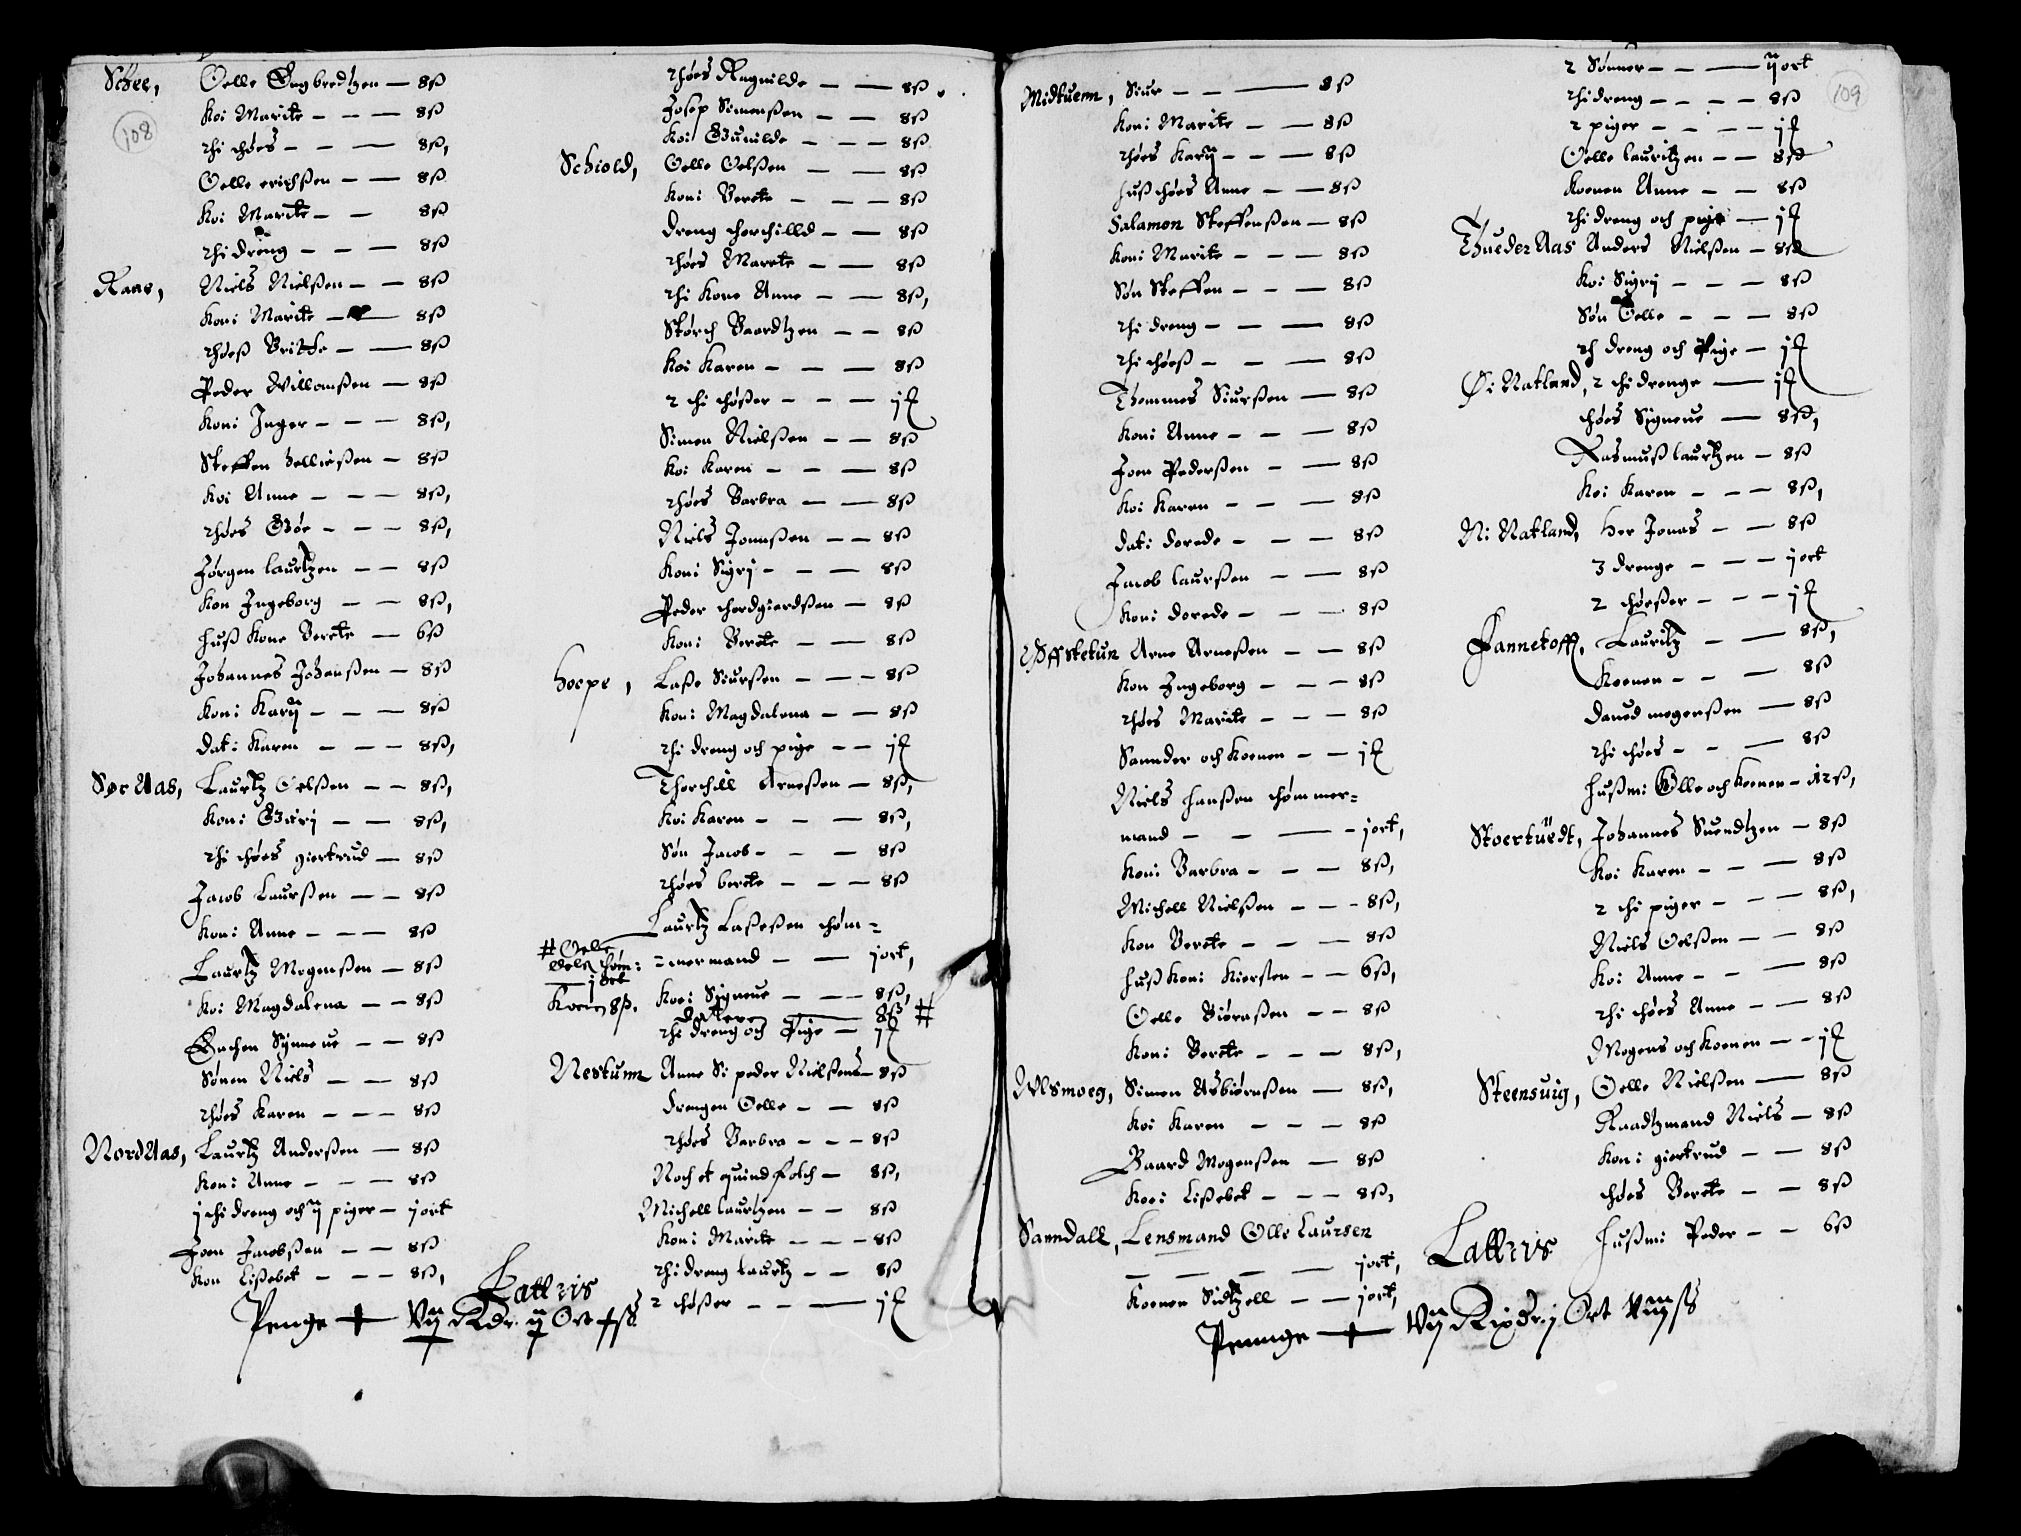 108
Schee, Oelle Engbredtzen — 8ß
Koi Marite — 8ß
thi thøes — 8ß,
Oelle erichßen — 8ß
Koi Marite — 8ß
thi dreng — 8ß
Raae, Niels Nielßen — 8ß
Koni Marite — 8ß
thøeß Britte — 8ß
Peder Willomßen — 8ß
Koni Inger — 8ß,
Steffen — 8ß
Koi Anne — 8ß,
thøes — 8ß,
Jørgen laurtzen — 8ß
Kon Ingeborg — 8ß,
Huß Kone Berete — 6ß
Johannes Johanßen — 8ß
Koni Karij — 8ß
dat: Karen — 8ß,
Sør Aas, Laurtz Oelßen — 8ß,
Koni — 8ß,
thi thøes giertrud — 8ß
Jacob Laurßen — 8ß
Koni Anne — 8ß
Laurtz Mogenßen — 8ß
Koi Magdalena — 8ß
Enchen Synneue — 8ß
Sønen Niels — 8ß
thøes Karen — 8ß
Nord Aas, Laurtz Anderßen — 8ß
Koni Anne — 8ß
j thi dreng och ij piger — j ort
Joen Jacobßen — 8ß
Kon Lißebet — 8ß,
thøes Ragnilde — 8ß
Josep Simenßen — 8ß
Koi Gunilde — 8ß
Schiold, Oelle Oelßen — 8ß
Koni Berete — 8ß
dreng thorchilld — 8ß
thøes Marete — 8ß
thi Kone Anne — 8ß,
Størch Baardtzen — 8ß
Koi Karen — 8ß
2 thi thøßer —
Simen Nielßen — 8ß
Koi Karen — 8ß
thøes Barbra — 8ß
Niels Jonnßen — 8ß
Koni Sigrj — 8ß
Peder thordgierdßen — 8ß
Koni Berete — 8ß
Hoepe, Laße Siurßen — 8ß
Koni Magdalena — 8ß
thi dreng och pige —
Thorchill Arneßen — 8ß,
Koi Karen — 8ß,
Søn Jacob — 8ß
thøes berete — 8ß
Laurtz Laßeßen thøm=
=mermand — j ort,
# Oelle
Oelß thøm:
— j ort
Koen 8ß.
Koei Signeue — 8ß,
— 8ß #
thi dreng och Pige —
Nestunn Anne Si peder Nielßens — 8ß
drengen Oelle — 8ß
thøes Barbra — 8ß
Noch et quindfolch — 8ß,
Michell laurtzen — 8ß
Koni Marite — 8ß
thi dreng laurtz — 8ß
2 thøßer —
Latteris
Penge — Vij Rdr. ij Ort
109
Midtuenn, Siur — 8ß
Koni Marite — 8ß
thøes Karij — 8ß
Huß thøes Anne — 8ß
Salamon Steffenßen — 8ß
Koni Marite — 8ß
Søn Steffen — 8ß
thi dreng — 8ß
thi thøeß — 8ß
Thommes Siurßen — 8ß
Koni Anne — 8ß
Joen Pederßen — 8ß
Koi Karen — 8ß
dat: dorede — 8ß
Jacob laurßen — 8ß
Koni dorede — 8ß
Arne Arneßen — 8ß
Kon Ingeborg — 8ß
thøes Marite — 8ß
Sannder och Koenen —
Niels Hanßen thømmer=
mand — j ort,
Koni Barbra — 8ß,
Michell Nielßen — 8ß,
Kon Berete — 8ß
Huß Koni Kiersten — 6ß,
Oelle Biørnßen — 8ß
Koni Berete — 8ß,
Simen Asbiørnßen — 8ß,
Koi Karen — 8ß
Baard Mogenßen — 8ß
Koei Lißebet — 8ß,
Sanndall, Lensmand Olle Laursen
— j ort,
Koenen Sidtzell — j ort,
2 Sønner — ij ort
thi dreng — 8ß
2 piger —
Oelle lauritzen — 8ß
Koenen Anne — 8ß
thi dreng och pige —
Thueder Aas Anders Nielßen — 8ß
Koi Sigrj — 8ß
Søn Oelle — 8ß
th dreng och Pige —
Øi Natland, 2 thi drenge —
thøes Signeue — 8ß,
Rasmuß laurtzen — 8ß
Koi Karen — 8ß,
Ni Natland, Her Jonas — 8ß
3 drenge — j ort
2 thøeßer —
Fannetofft, Lauritz — 8ß,
Koenen — 8ß
Dauid mogenßen — 8ß
thi thøes — 8ß
Hußm: Olle och Koenen — 12ß,
Stoertuedt, Johannes Suendtzen — 8ß
Koi Karen — 8ß
2 thi piger — 8ß,
Niels Oelßen — 8ß
Koi Anne — 8ß
thi thøes Anne — 8ß
Mogens och Koenen —
Steensuig, Oelle Nielßen — 8ß
Raadtzmand Niels — 8ß
Koni giertrud — 8ß
thøes Berete — 8ß
Hußm: Peder — 6ß
Latteris
Penge — Vij Rixdr. j Ort Viijß